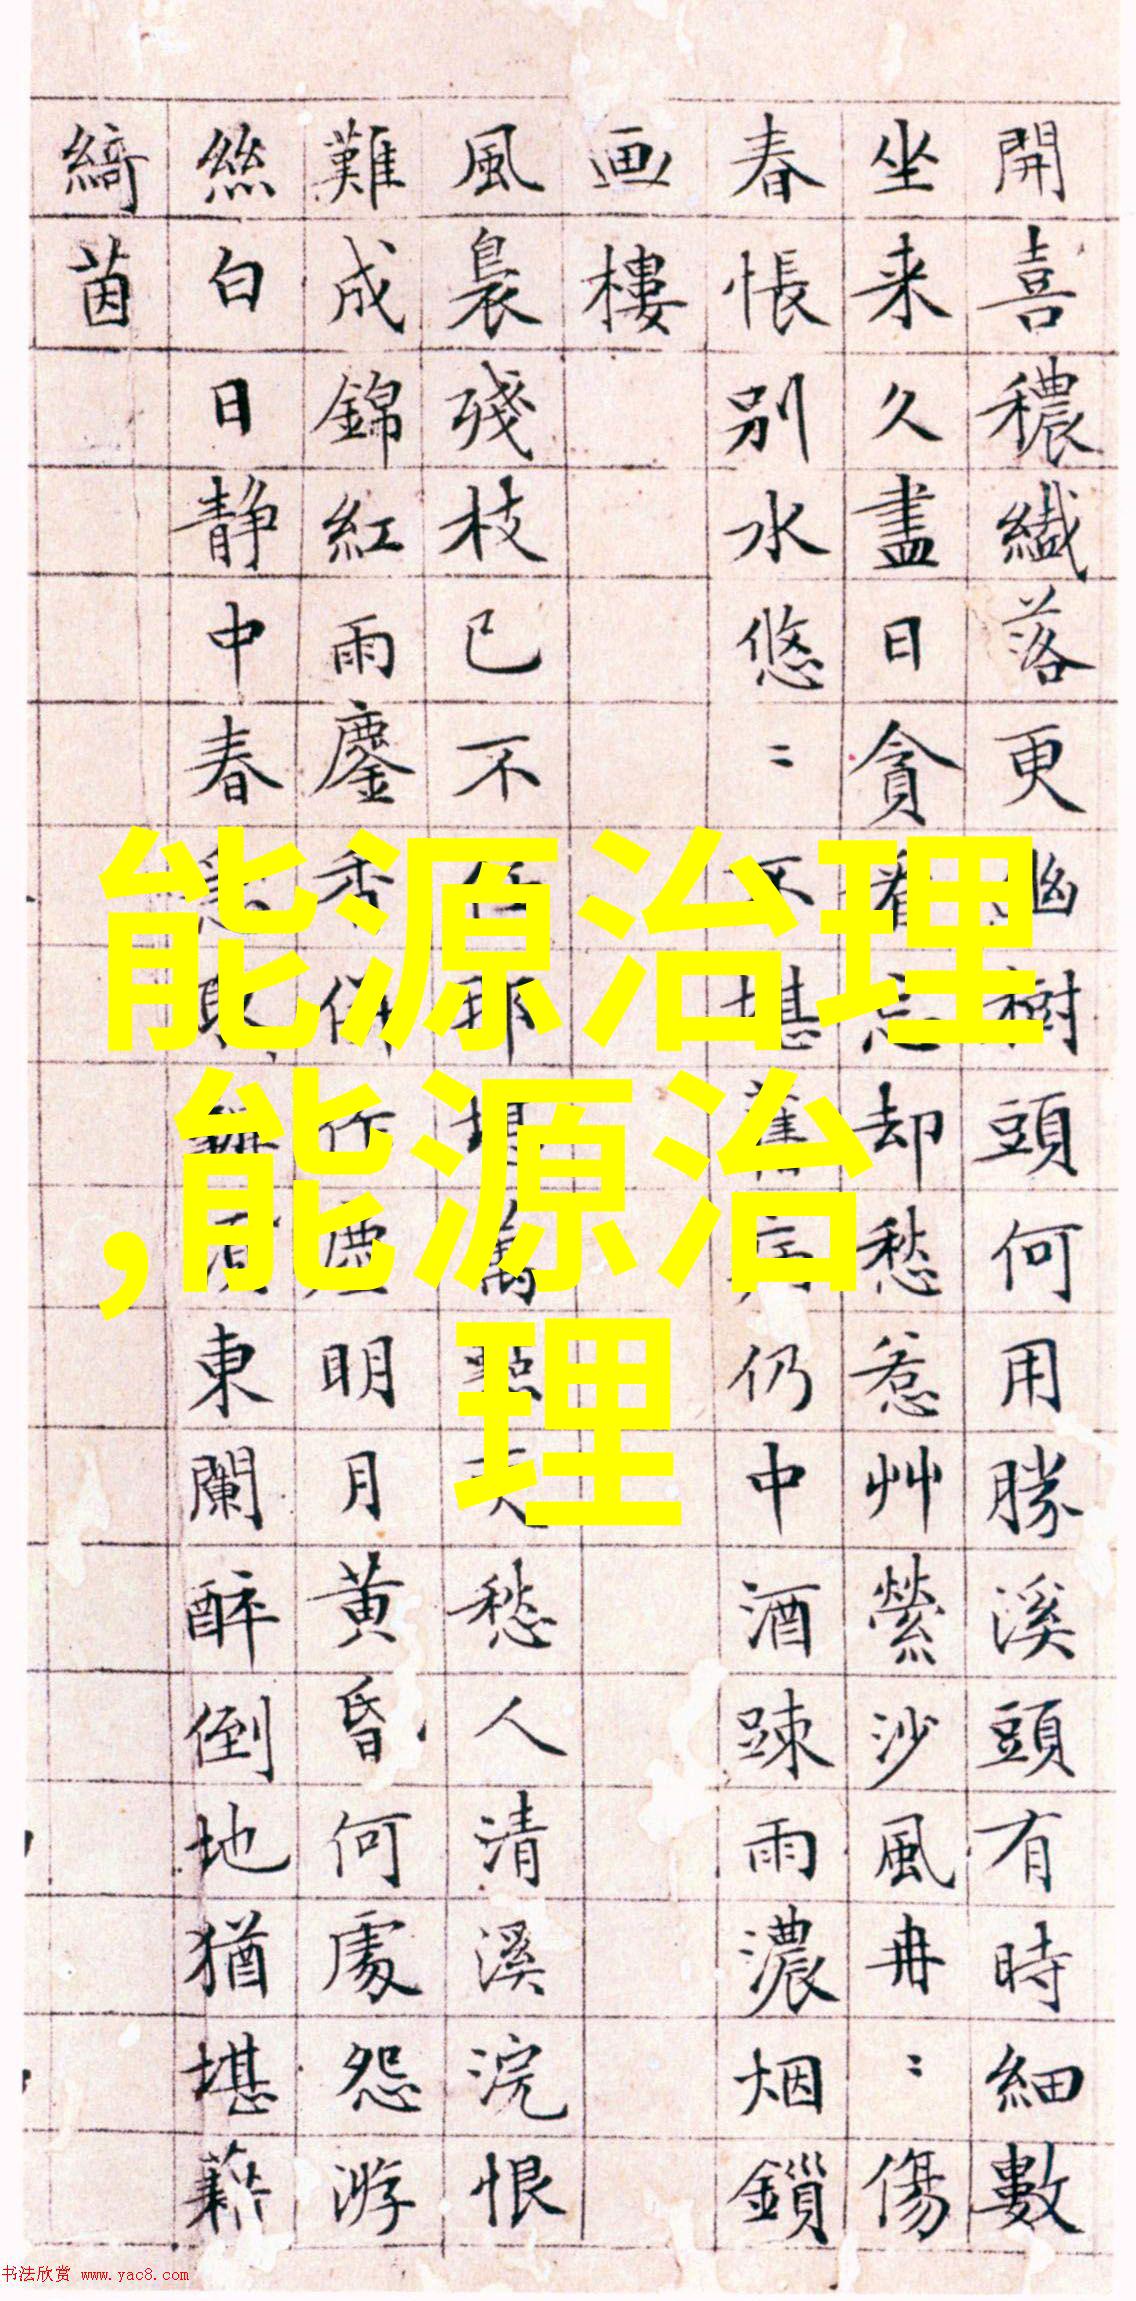 開喜穠纖落更幽樹頭何用勝溪頭有時細數
坐来久盡日貪看忘却愁惹艸縈沙風冉〻傷
春悵别水悠〻不堪舊病仍中酒踈雨濃烟鎖
画樓
風裊殘枝已不任那堪萬點更愁人清溪浣恨
難成錦紅雨鏖香併作塵明月黄昏何處怨游
絲白日静中春東闌醉倒地猶堪藉
綺茵
能源治理
,能源治
理
书法欣赏 www.yac8.com